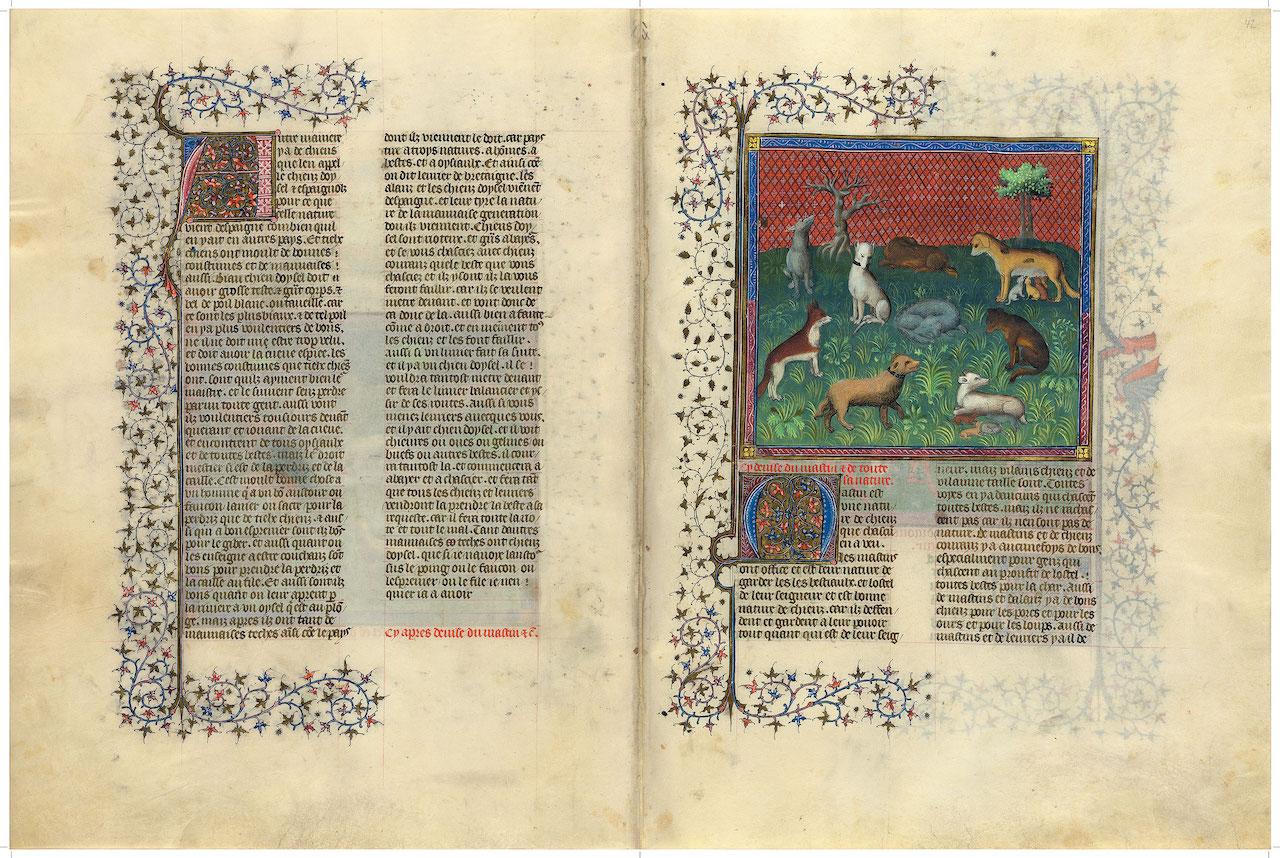 Autre maniere
ya de chiens
que len appel
le chienz doy
sel et espaignolz
pour ce que
celle nature
vient despaigne combien quil
en yait en autres pays. Et tielx
chiens ont moult de bonnes
coustumes et de mauvaises
aussi. Biau chien doysel doit
avoir grosse teste, et grant corps, et
bel de poil blanc, ou taveille. car
ce sont les plus biaux. et de tel poil
en ya plus voulentiers de bons.
et il ne doit mie estre trop velu.
et doit avoir la cueue espiee. les
bonnes coustumes que tielx chiens
ont. sont quilz ayment bien le
maistre. et le suivent senz perdre
par mi toute gent. aussi vont
ilz voulentiers touzjours devant
querant et jouant de la cueue.
et encontrent de touz oysiaulx
et de toutes bestes. maiz le droit
mestier si est de la perdriz et de la
caille. Cest moult bonne chose a
un homme qui a un bon austour ou
faucon. lanier ou sacre pour la
perdriz que de tielx chienz. et aus
si qui a bon espremer sont ilz bons
pour le giber. et aussi quant on
les enseigne a estre couchanz sont
bons pour prendre la perdriz et
la caille au file. Et aussi sont ilz
bons quant on leur aprent par
la riviere a un oysel qui est au plon
ge. maiz apres ilz ont tant de
mauvaises teches ainsi com le pays
dont ilz viennent le doit. car pays
tire a troys natures. a homes. a
bestes. et a oysiaulx. Et ainsi com
on dit levrier de bretaigne. les
alanz et les chienz doysel vienent
despaigne. et leur tyre la natu
re de la mauvaise generation
dont ilz viennent. Chiens doy
sel sont rioteux. et granz abayeurs.
et se vous chasciez avec chienz
couranz quele beste que vous
chasciez et ilz y sont ilz la vous
feront faillir. car ilz se veulent
metre devant. et vont donc de
ca donc de la. aussi bien a faute
come a droit. et en meinent touz
les chienz. et les font faillir.
aussi si un limier fait sa suite.
et il ya un chien doysel. il se
vouldra tantost metre devant
et fera le limier balancier et ys
sir de ses routes. aussi si vous
menez levriers avecques vous.
et il y ait chien doysel. et il voit
chievres ou oues ou gelines ou
buefs ou autres bestes. il cour
ra tantost la. et commencera a
abayer et a chascier. et fera tant
que tous les chienz et levriers
vendront la prendre la beste a sa
requeste. car il fera toute la rio
te et tout le mal. Tant dautres
mauvaises teches ont chienz
doysel. que si je navoye laustour
sus le poing ou le faucon ou
lespremier ou le file je nen
quier ja a avoir
Cy apres devise du mastin et cetera.
42
Cy devise du mastin et de toute
sa nature.
Mastin est
une natu
re de chienz
que chascun
en a veu.
les mastins
ont office et est leur nature de
garder les les bestiaulx. et lostel
de leur seigneur et est bonne
nature de chienz. car ilz deffen
dent et gardent a leur povoir
tout quant qui est de leur seig
neur. maiz vilains chienz et de
vilainne taille sont. Toutes
voyes en ya daucuns qui chascent
toutes bestes. maiz ilz ne rachas
cent pas car ilz nen sont pas de
nature. De mastins et de chienz
couranz ya aucuneffoys de bons.
especialment pour genz qui
chascent au profit de lostel
toutes bestes pour la char. aussi
de mastins et dalanz ya de bons
chienz pour les porcs et pour les
ours et pour les loups. aussi de
mastins et de levriers ya il de